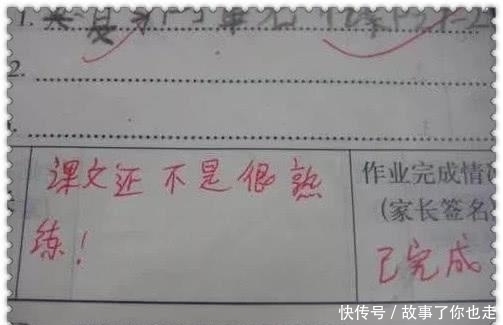 1.
2.
课文还不是很熟
练！
作业完成情
(家长签名
已完成
快传号/故事了你也走